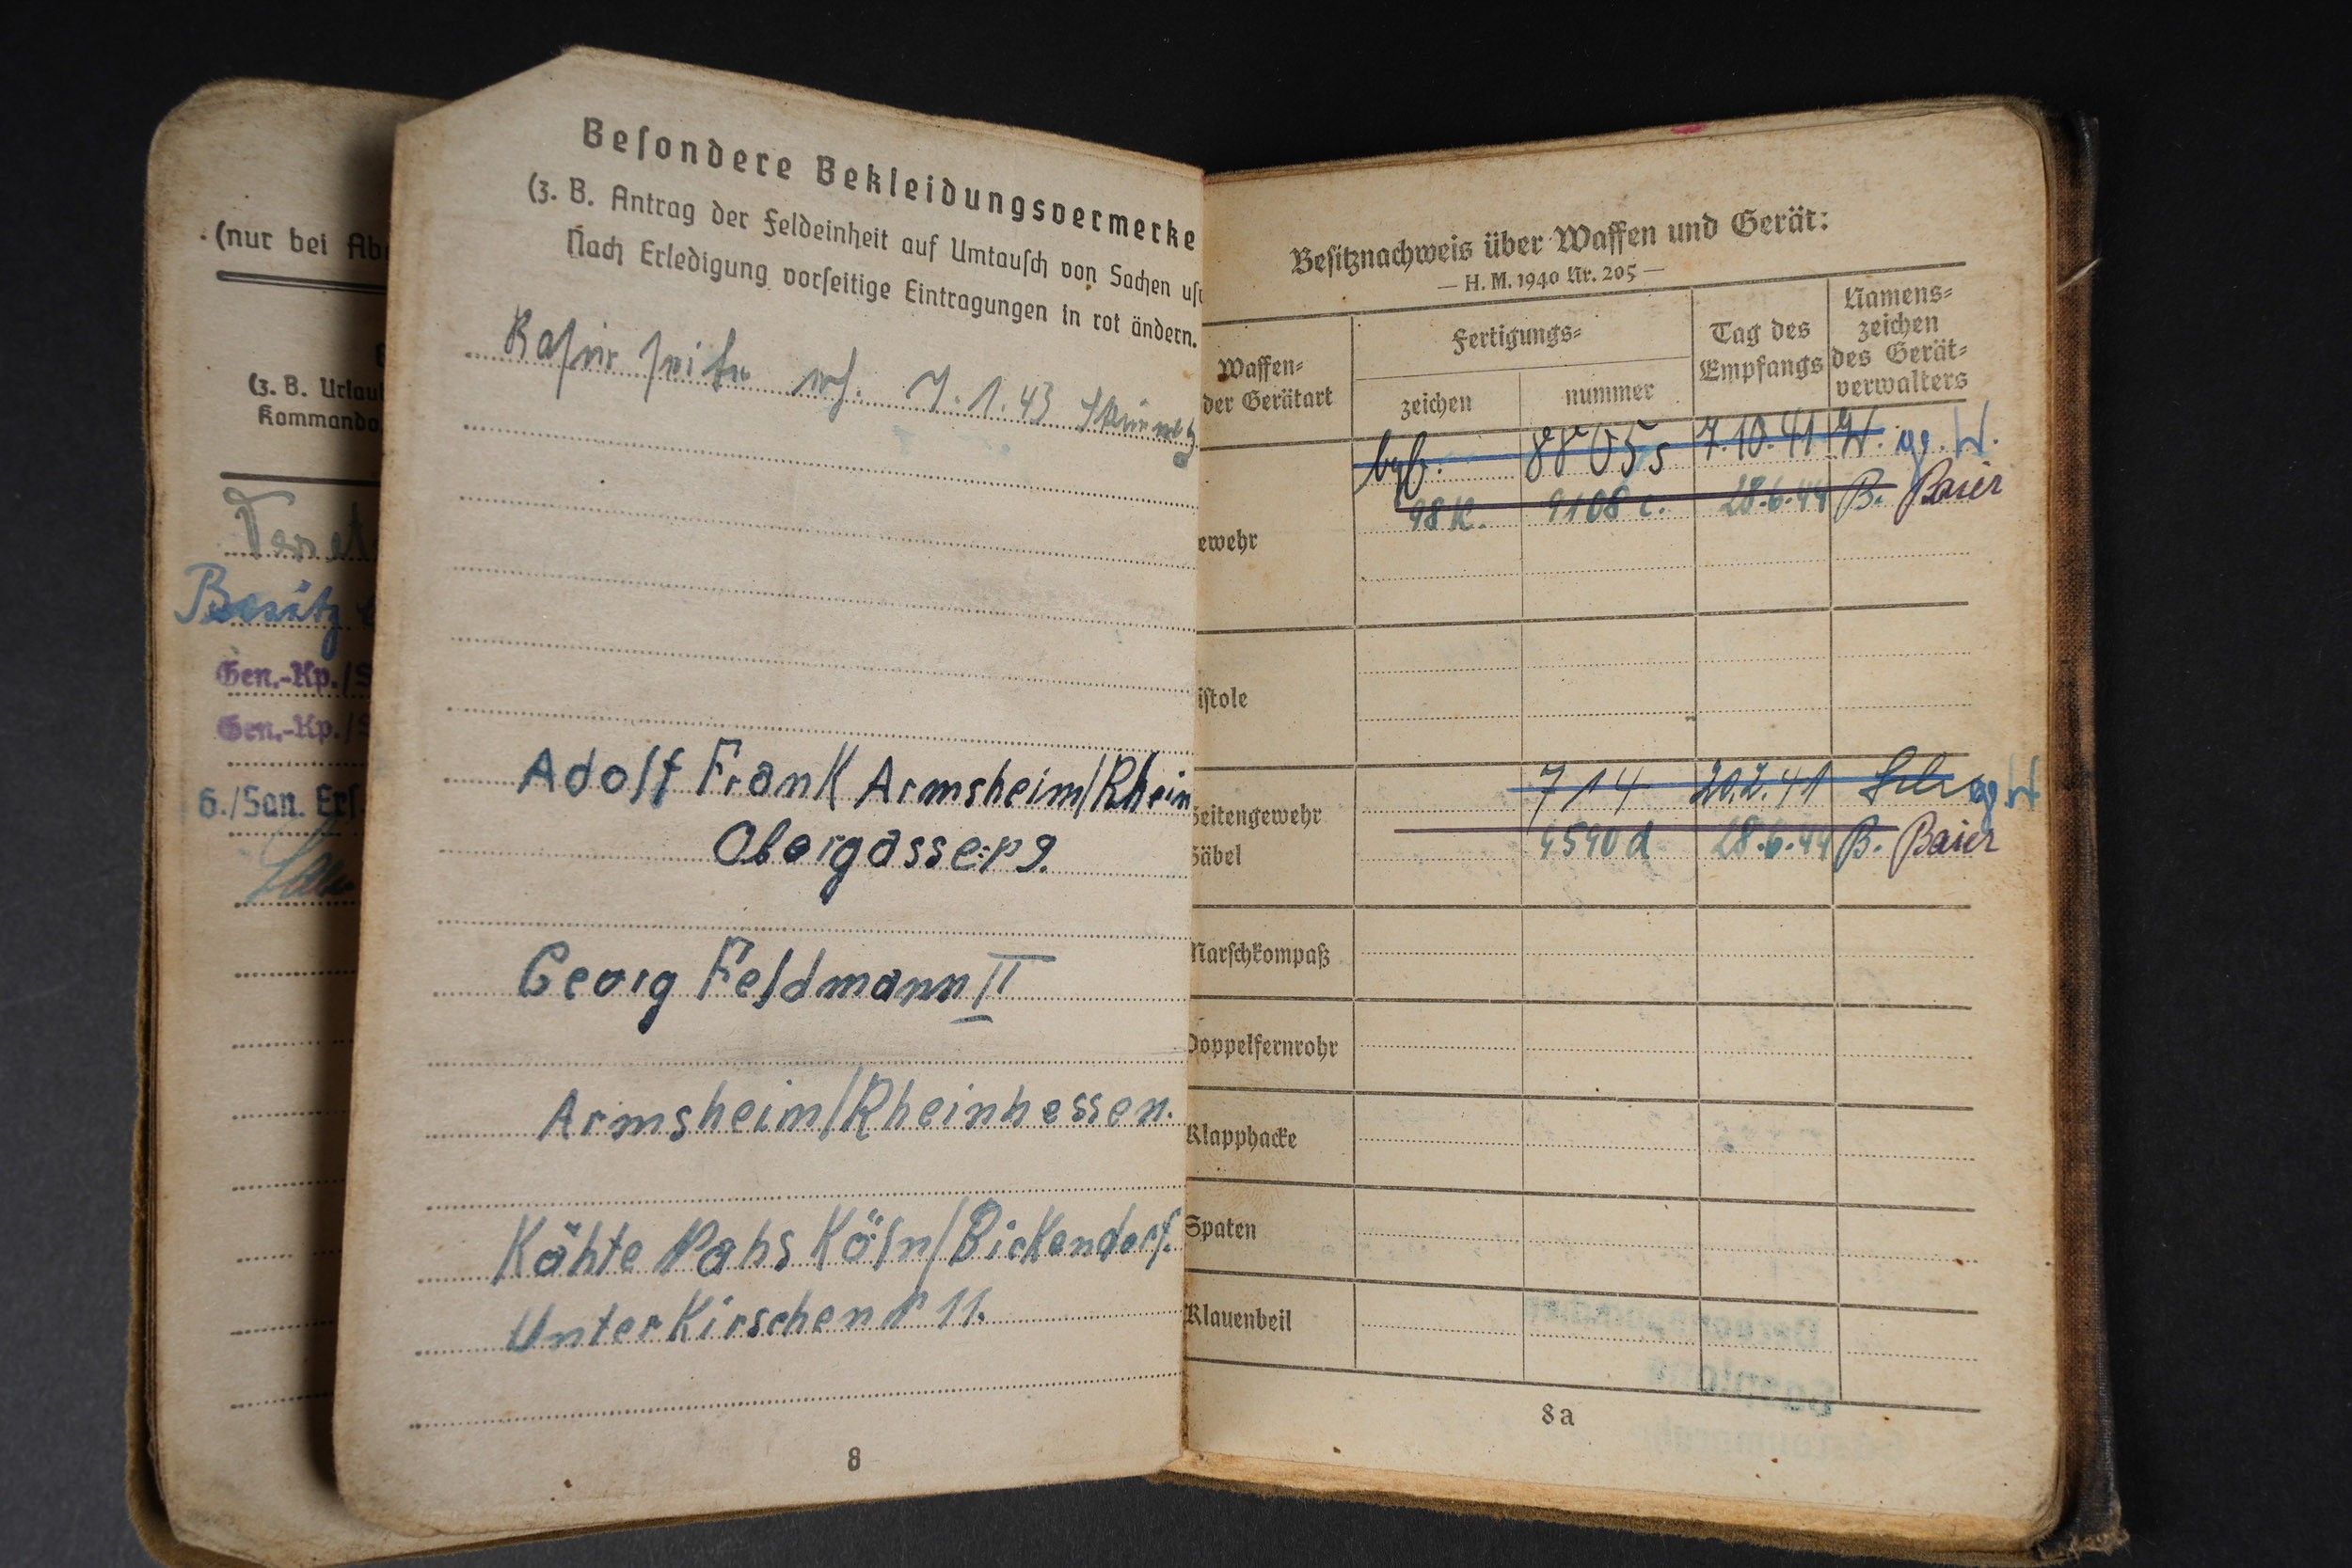 (nur bei Ab
(z. B. Urlau
Kommando
Besitz
Gen.-Kp./S
Gen.-Kp./S
6./San. Ers.
Besondere Bekleidungsvermerke
(z. B. Antrag der Feldeinheit auf Umtausch von Sachen usw
Nach Erledigung vorseitige Eintragungen in rot ändern.
7.1.43
Adolf Frank Armsheim/Rhein
Obergasse
Georg Feldmann II
Armsheim/Rheinhessen.
Kähte Pahs Köln/Bickendorf.
Unter Kirschen 11.
8
Besitznachweis über Waffen und Gerät:
— H. M. 1940 Nr. 205 —
Waffen-
der Gerätart
Fertigungs-
zeichen
nummer
Tag des
Empfangs
Namens-
zeichen
des Gerät-
verwalters
ewehr
7.10.41
98K. 9108 c. 28.6.44 B. Baier
istole
Seitengewehr 714 20.2.41
Säbel 4590 d 28.6.44 B. Baier
Marschkompaß
Doppelfernrohr
Klapphacke
Spaten
Klauenbeil
8a